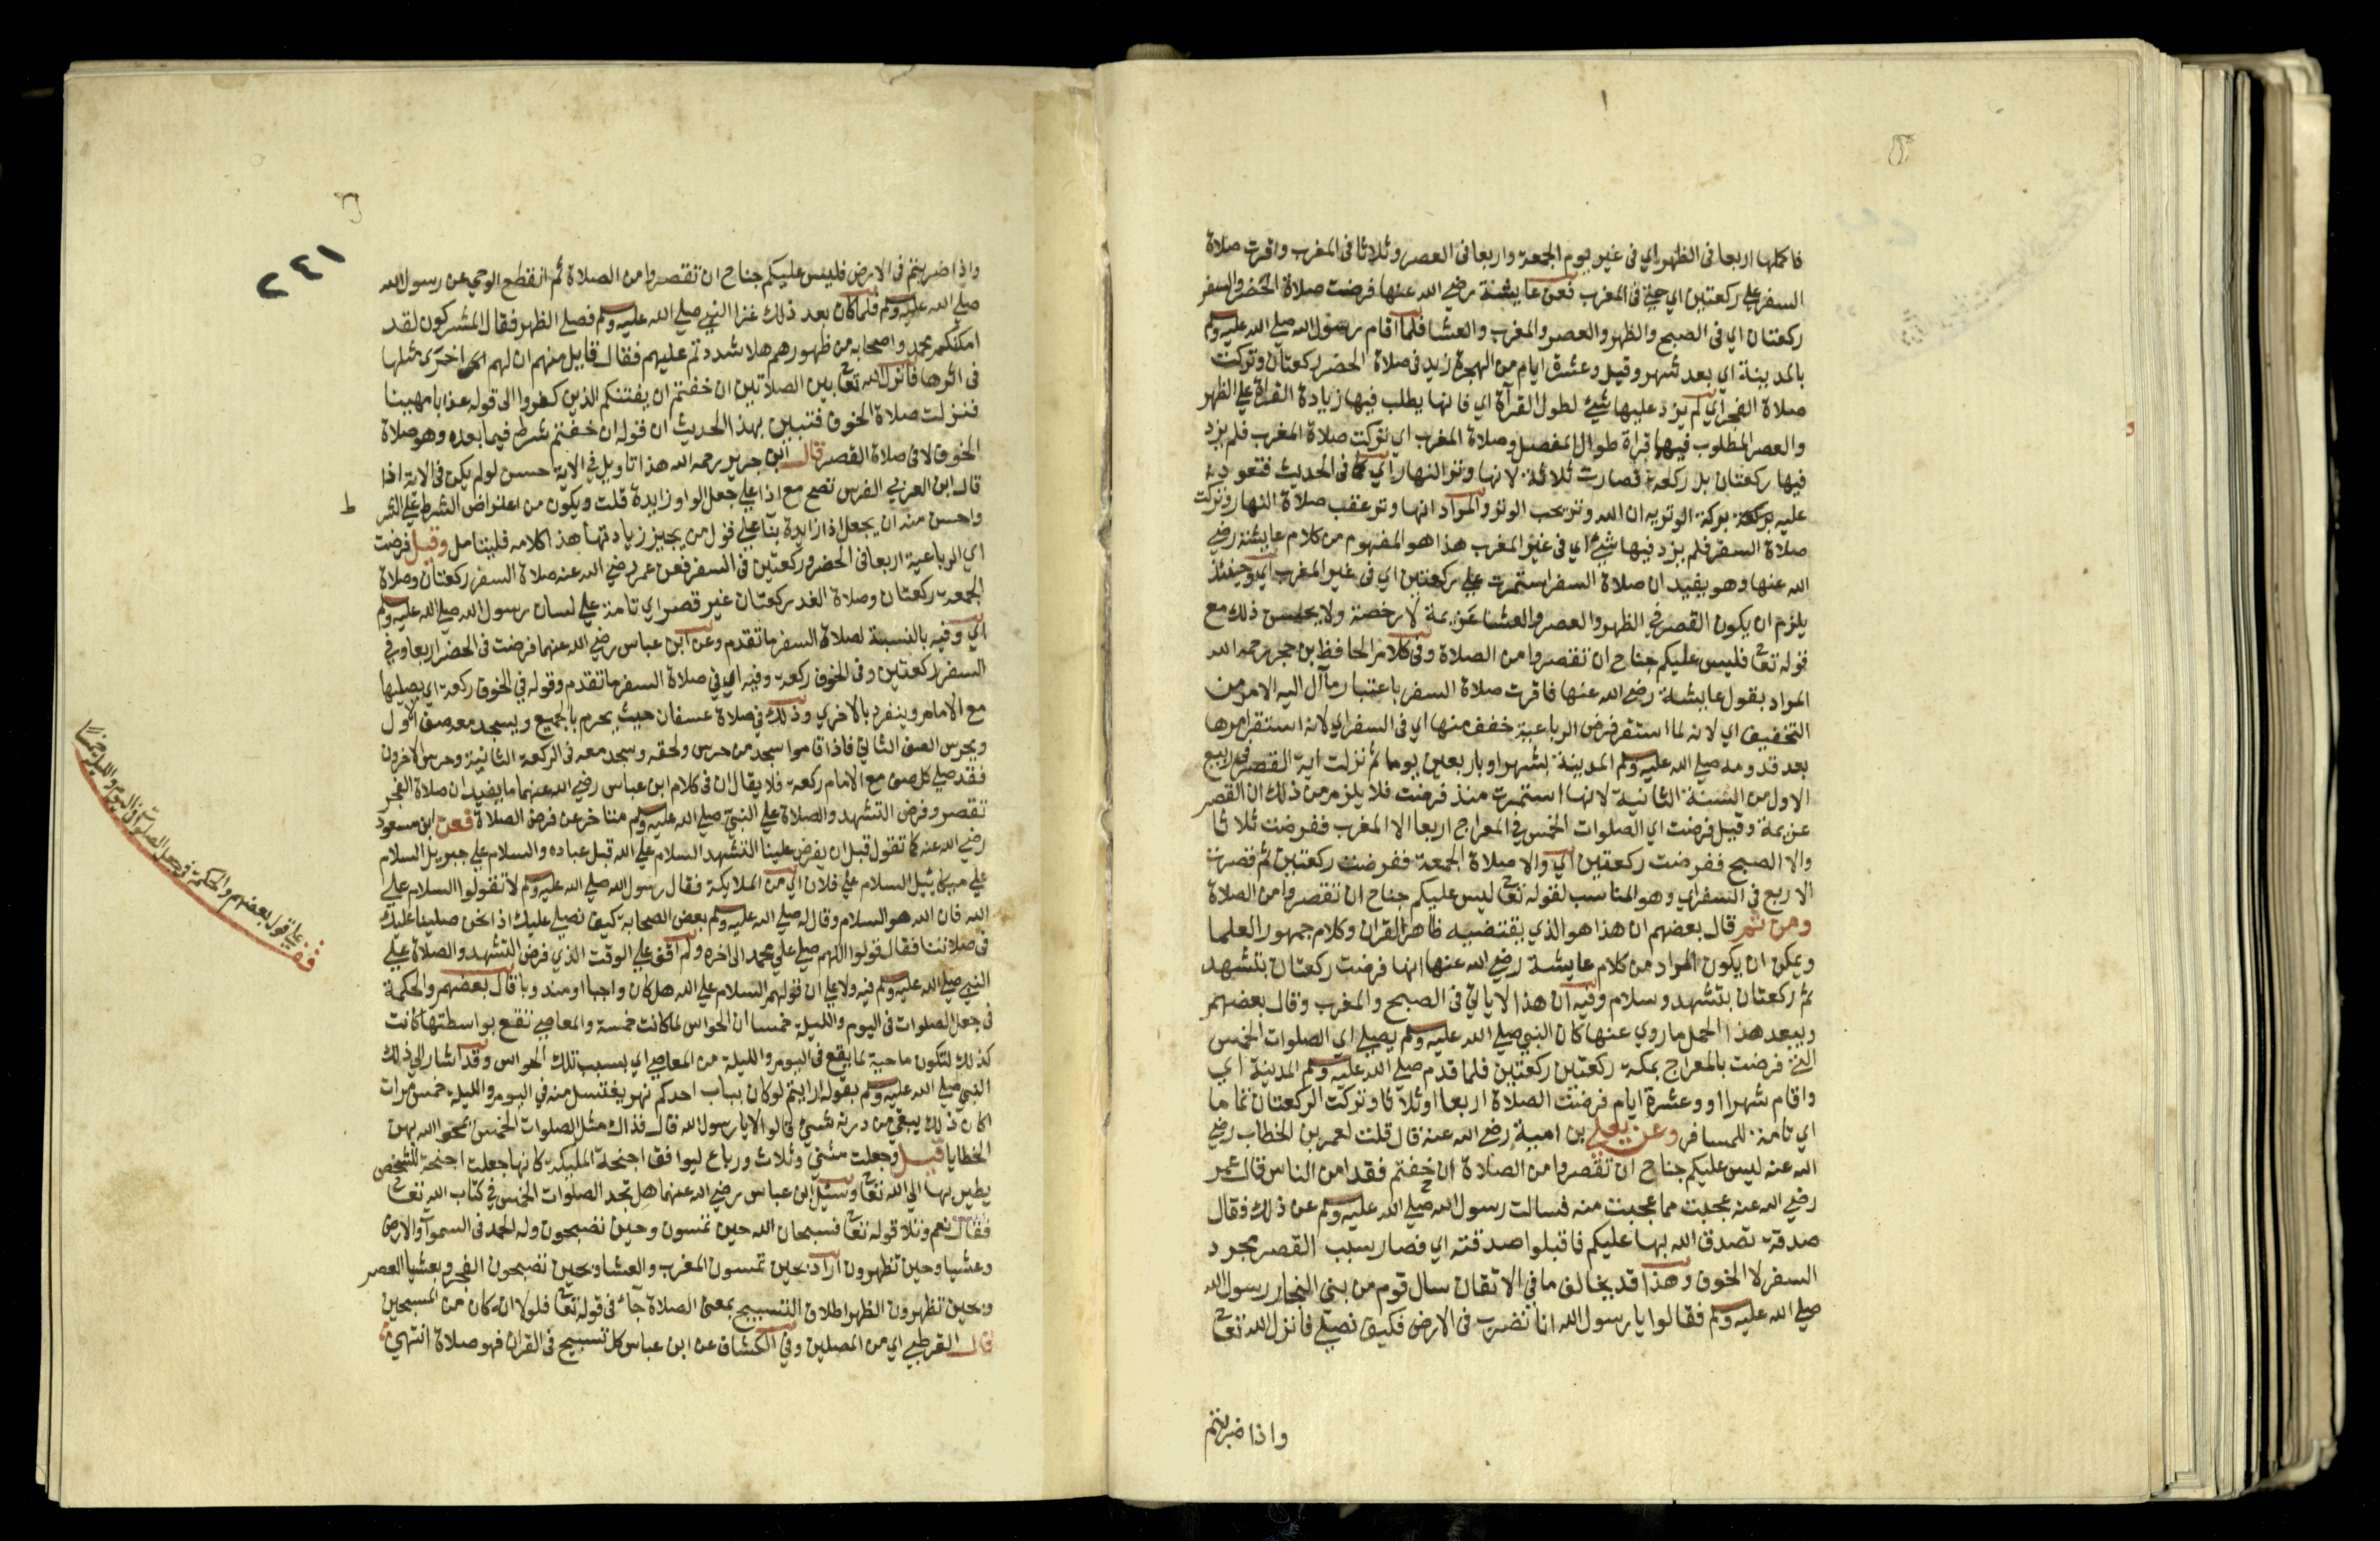 فاكملها اربعا فى الظهر اي فى غير يوم الجمعة واربعا فى العصر وثلاثا فى المغرب واقرت صلاة
السفر على ركعتين اي حتى فى المغرب فعن عايشة رضي الله عنها فرضت صلاة الحضر والسفر
ركعتان اي فى الصبح والظهر والعصر والمغرب والعشا فلما اقام رسول الله صلى الله عليه وسلم
بالمدينة اي بعد شهر وقيل وعشرة ايام من الهجرة زيد فى صلاة الحضر ركعتان وتركت
صلاة الفجر اي لم يزد عليها شئ لطول القرآة اي فانها يطلب فيها زيادة القراة على الظهر
والعصر المطلوب فيهما قراة طوال المفصل وصلاة المغرب اي تركت صلاة المغرب فلم يزد
فيها ركعتان بل ركعة فصارت ثلاثة لانها وتر النهار اي كما فى الحديث فتعود به
عليه بركة الوتر به ان الله وتر يحب الوتر والمراد انها وتر عقب صلاة النهار وتركت
صلاة السفر فلم يزد فيها شئ اي فى غير المغرب هذا هو المفهوم من كلام عايشة رضي
الله عنها وهو يفيد ان صلاة السفر استمرت على ركعتين اي فى غير المغرب اي وحينئذ
يلزم ان يكون القصر في الظهر والعصر والعشا عزيمة لا رخصة ولا يحسن ذلك مع
قوله تعا فليس عليكم جناح ان تقصروا من الصلاة وفى كلام الحافظ بن حجر رحمه الله
المراد بقول عايشة رضي الله عنها فاقرت صلاة السفر باعتبار ما آل اليه الامر من
التخفيف اي لانه لما استقر فرض الرباعية خفف منها اي فى السفر اي لانه استقر امرها
بعد قدومه صلى الله عليه وسلم المدينة بشهر او باربعين يوما ثم نزلت اية القصر في ربيع
الاول من السنة الثانية لانها استمرت منذ فرضت فلا يلزم من ذلك ان القصر
عزيمة وقيل فرضت اي الصلوات الخمس في المعراج اربعا الا المغرب ففرضت ثلاثا
والا الصبح ففرضت ركعتين اي والا صلاة الجمعة ففرضت ركعتين ثم قصرت
الاربع في السفر اي وهو المناسب لقوله تعا ليس عليكم جناح ان تقصروا من الصلاة
ومن ثم قال بعضهم ان هذا هو الذي يقتضيه ظاهر القران وكلام جمهور العلما
ويمكن ان يكون المراد من كلام عايشة رضي الله عنها انها فرضت ركعتان بتشهد
ثم ركعتان بتشهد وسلام وفيه ان هذا لا ياتي فى الصبح والمغرب وقال بعضهم
ويبعد هذا الحمل ما روي عنها كان النبي صلى الله عليه وسلم يصلي اي الصلوات الخمس
التى فرضت بالمعراج بمكة ركعتين ركعتين فلما قدم صلى الله عليه وسلم المدينة اي
واقام شهرا او وعشرة ايام فرضت الصلاة اربعا او ثلاثا وتركت الركعتان تماما
اي تامة للمسافر وعن يعلى بن امية رضي الله عنه قال قلت لعمر بن الخطاب رضي
الله عنه ليس عليكم جناح ان تقصروا من الصلاة ان خفتم فقد امن الناس قال عمر
رضي الله عنه عجبت مما عجبت منه فسالت رسول الله صلى الله عليه وسلم عن ذلك فقال
صدقة تصدق الله بها عليكم فاقبلوا صدقته اي فصار سبب القصر مجرد
السفر لا الخوف وهذا قد يخالف ما في الاتقان سال قوم من بني النجار رسول الله
صلى الله عليه وسلم فقالوا يا رسول الله انا نضرب فى الارض فكيف نصلي فانزل الله تعا
واذا ضربتم
٢٤١
واذا ضربتم فى الارض فليس عليكم جناح ان تقصروا من الصلاة ثم انقطع الوحي عن رسول الله
صلى الله عليه وسلم فلما كان بعد ذلك غزا النبي صلى الله عليه وسلم فصلى الظهر فقال المشركون لقد
امكنكم محمد واصحابه من ظهورهم هلا شددتم عليهم فقال قايل منهم ان لهم اخرى مثلها
فى اثرها فانزل الله تعا بين الصلاتين ان خفتم ان يفتنكم الذين كفروا الى قوله عذابا مهينا
فنزلت صلاة الخوف فتبين بهذا الحديث ان قوله ان خفتم شرط فيما بعده وهو صلاة
الخوف لا فى صلاة القصر قال ابن جرير رحمه الله هذا تاويل في الاية حسن لو لم يكن فى الاية اذا
قال ابن الغرس تصح مع اذا على جعل الواو زايدة قلت ويكون من اعتراض الشرط على الشر
ط
واحسن منه ان يجعل اذا زايدة بنا على قول من يجيز زيادتها هذا كلامه فليتامل وقيل فرضت
اي الرباعية اربعا فى الحضر وركعتين فى السفر فعن عمر رضي الله عنه صلاة السفر ركعتان وصلاة
الجمعة ركعتان وصلاة الغد ركعتان غير قصر اي تامة على لسان رسول الله صلى الله عليه وسلم
اي وفيه بالنسبة لصلاة السفر ما تقدم وعن ابن عباس رضي الله عنهما فرضت فى الحضر اربعا وفي
السفر ركعتين وفى الخوف ركعة وفيه اي في صلاة السفر ما تقدم وقوله في الخوف ركعة اي يصليها
مع الامام وينفرد بالاخري وذلك في صلاة عسفان حيث يحرم بالجميع ويسجد معه صف اول
ويحرس الصف الثاني فاذا قاموا سجد من حرس ولحقه وسجد معه فى الركعة الثانية وحرس الاخرون
فقد صلى كل صف مع الامام ركعة فلا يقال ان فى كلام ابن عباس رضي الله عنهما ما يفيد ان صلاة الفجر
تقصر وفرض التشهد والصلاة على النبي صلى الله عليه وسلم متاخر عن فرض الصلاة فعن ابن مسعود
رضي الله عنه كنا نقول قبل ان يفرض علينا التشهد السلام على الله قبل عباده والسلام على جبريل السلام
على ميكاييل السلام على فلان اي من الملايكة فقال رسول الله صلى الله عليه وسلم لا تقولوا السلام على
الله فان الله هو السلام وقال له صلى الله عليه وسلم بعض الصحابة كيف نصلي عليك اذا نحن صلينا عليك
فى صلاتنا فقال قولوا اللهم صلى على محمد الى اخره ولم اقف على الوقت الذي فرض التشهد والصلاة على
النبي صلى الله عليه وسلم فيه ولا على ان قولهم السلام على الله هل كان واجبا او مندوبا قال بعضهم والحكمة
فى جعل الصلوات فى اليوم والليلة خمسا ان الحواس لما كانت خمسة والمعاصي تقع بواسطتها كانت
كذلك لتكون ماحية لما يقع فى اليوم والليلة من المعاصي اي بسبب تلك الحواس وقد اشار الى ذلك
النبي صلى الله عليه وسلم بقوله ارايتم لو كان بباب احدكم نهر يغتسل منه في اليوم والليلة خمس مرات
اكان ذلك يبقي من درنه شئ قالوا لا يا رسول الله قال فذاك مثل الصلوات الخمس يمحو الله بهن
الخطايا قيل وجعلت مثنى وثلاث ورباع ليوافق اجنحة المليكة كانها جعلت اجنحة للشخص
يطير بها الى الله تعا وسئل ابن عباس رضي الله عنهما هل تجد الصلوات الخمس في كتاب الله تعا
فقال نعم وتلا قوله تعا فسبحان الله حين تمسون وحين تصبحون وله الحمد فى السموات والارض
وعشيا وحين تظهرون اراد بحين تمسون المغرب والعشا وبحين تصبحون الفجر وبعشيا العصر
وبحين تظهرون الظهر واطلاق التسبيح بمعنى الصلاة جآء فى قوله تعا فلولا انه كان من المسبحين
قال القرطبي اي من المصلين وفي الكشاف عن ابن عباس كل تسبيح فى القران فهو صلاة انتهى
قف على قول بعضهم والحكمة في جعل الصلوات فى اليوم والليلة خمسا